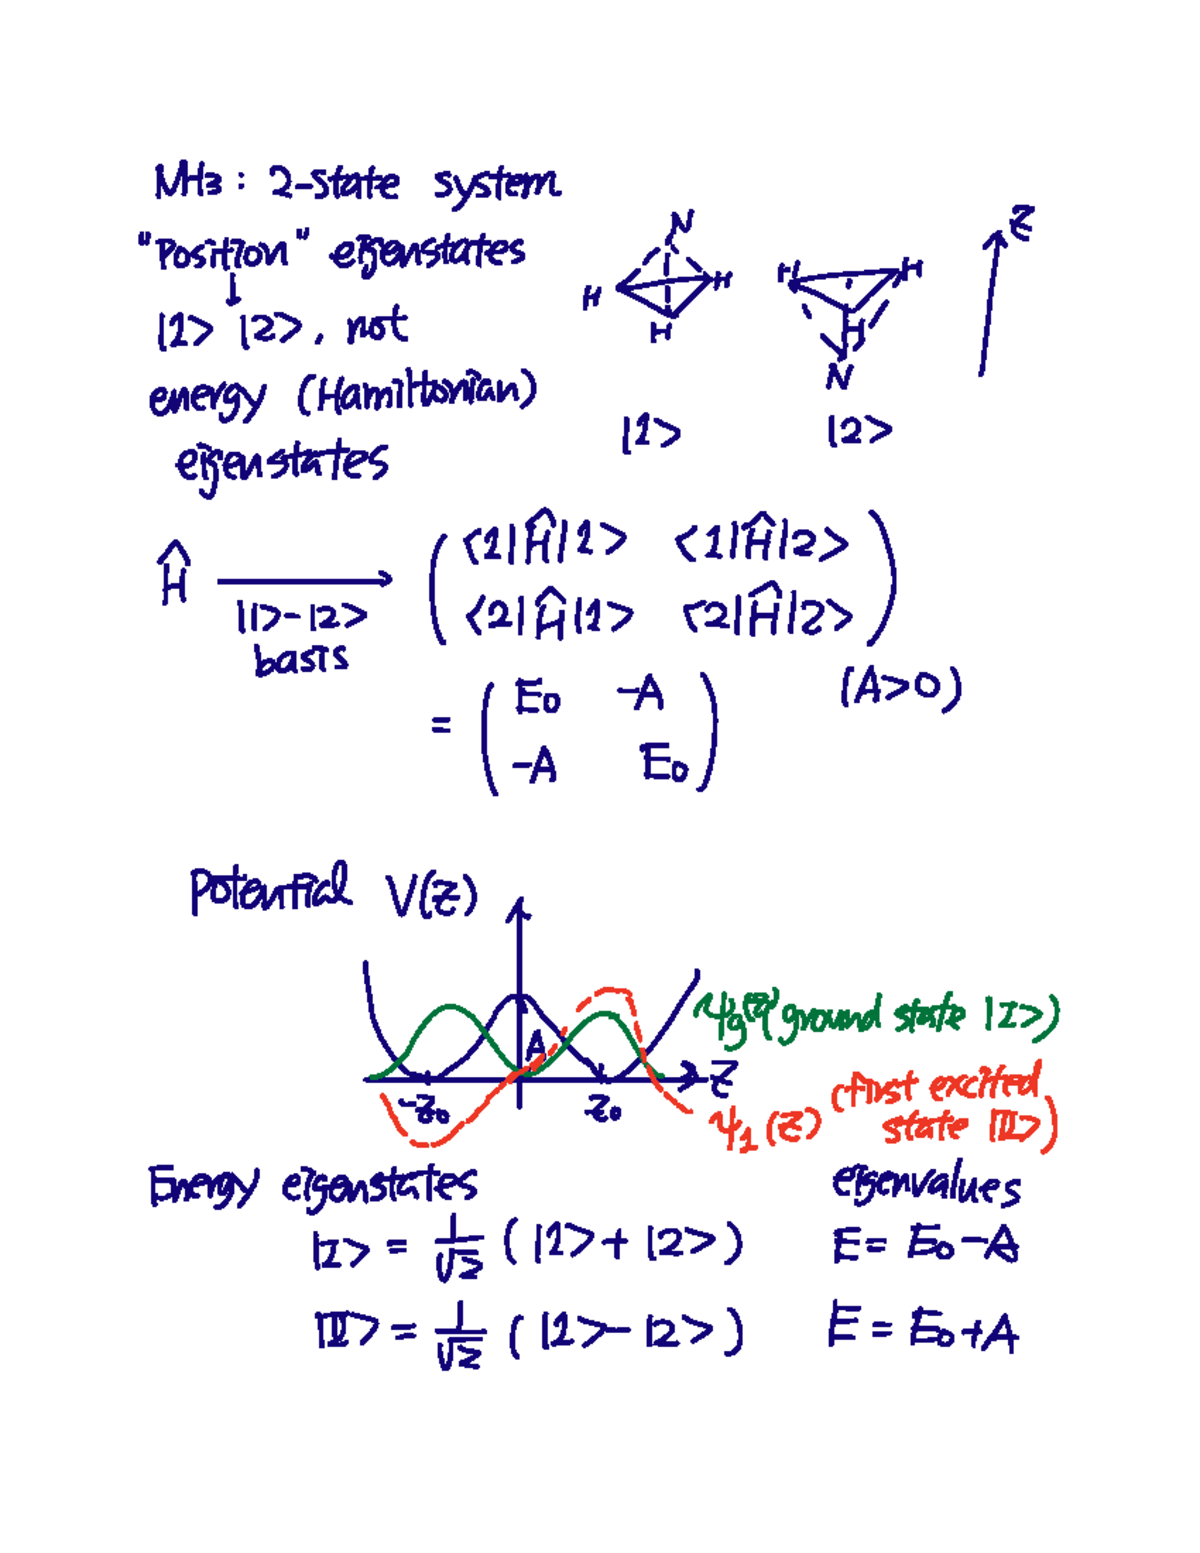 NH3 : 2-state system
"Position" eigenstates
|1> |2>, not
energy (Hamiltonian)
eigenstates
N
H H
H
|1>
H H
H
N
|2>
Z
Ĥ → ( <1|Ĥ|1> <1|Ĥ|2> )
|1>-|2> ( <2|Ĥ|1> <2|Ĥ|2> )
basis
= ( E0 -A ) (A>0)
( -A E0 )
Potential V(z)
A
-z0 z0 Z
ψg(z) (ground state |I>)
ψ1(z) (first excited
state |II>)
Energy eigenstates eigenvalues
|I> = 1/√2 ( |1> + |2> ) E = E0 - A
|II> = 1/√2 ( |1> - |2> ) E = E0 + A